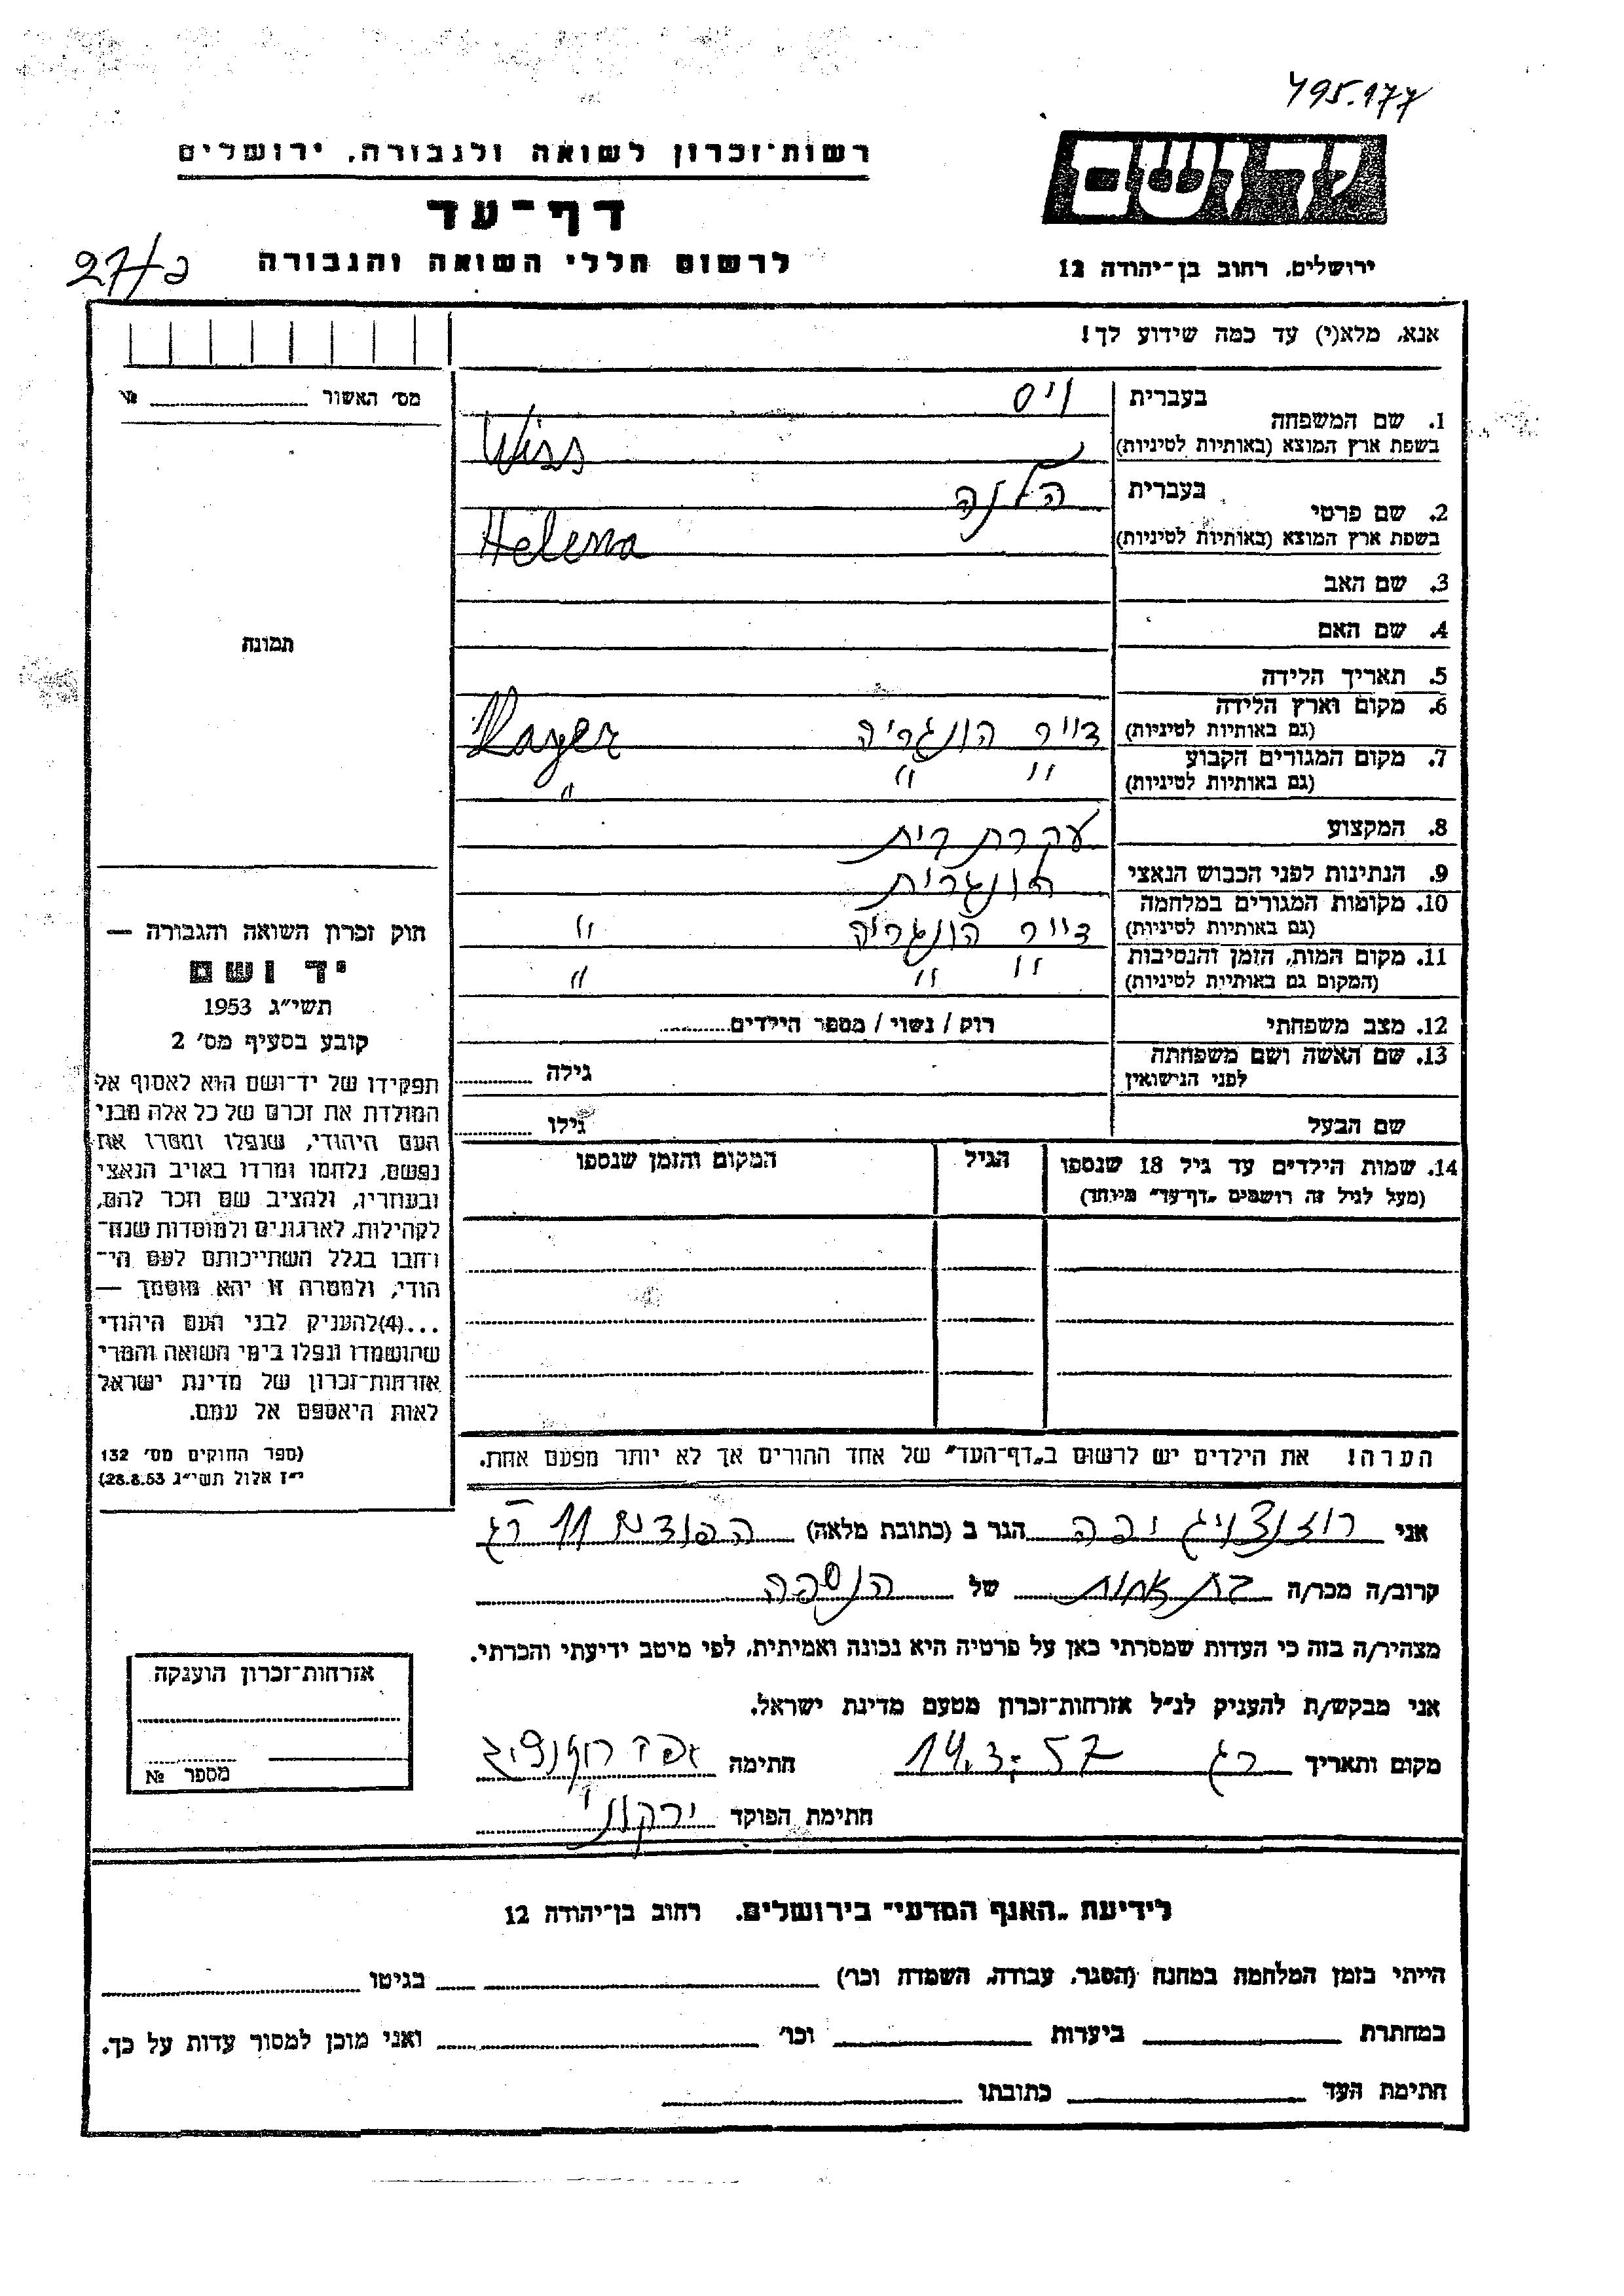 495.177
רשות־זכרון לשואה ולגבורה, ירושלים
יד ושם
דף־עד
לרשום חללי השואה והגבורה
ירושלים, רחוב בן־יהודה 12
אנא, מלא(י) עד כמה שידוע לך!
מס׳ האשור №
1. שם המשפחה
בעברית ויס
בשפת ארץ המוצא (באותיות לטיניות) Wiss
2. שם פרטי
בעברית הלנה
בשפת ארץ המוצא (באותיות לטיניות) Helena
3. שם האב
4. שם האם
תמונה
5. תאריך הלידה
6. מקום וארץ הלידה
(גם באותיות לטיניות) הונגריה
7. מקום המגורים הקבוע
(גם באותיות לטיניות) " " "
8. המקצוע עקרת בית
9. הנתינות לפני הכבוש הנאצי הונגרית
10. מקומות המגורים במלחמה
(גם באותיות לטיניות) הונגריה "
11. מקום המות, הזמן והנסיבות
(המקום גם באותיות לטיניות) " " "
12. מצב משפחתי רוק / נשוי / מספר הילדים
13. שם האשה ושם משפחתה
לפני הנישואין גילה
שם הבעל גילו
14. שמות הילדים עד גיל 18 שנספו הגיל המקום והזמן שנספו
(מעל לגיל זה רושמים „דף־עד" מיוחד)
הערה! את הילדים יש לרשום ב„דף־העד" של אחד ההורים אך לא יותר מפעם אחת.
חוק זכרון השואה והגבורה —
יד ושם
תשי״ג 1953
קובע בסעיף מס׳ 2
תפקידו של יד־ושם הוא לאסוף אל
המולדת את זכרם של כל אלה מבני
העם היהודי, שנפלו ומסרו את
נפשם, נלחמו ומרדו באויב הנאצי
ובעוזריו, ולהציב שם וזכר להם,
לקהילות, לארגונים ולמוסדות שנח־
רבו בגלל השתייכותם לעם הי־
הודי, ולמטרה זו יהא מוסמך —
...(4)להעניק לבני העם היהודי
שהושמדו ונפלו בימי השואה והמרי
אזרחות־זכרון של מדינת ישראל
לאות היאספם אל עמם.
(ספר החוקים מס׳ 132
י״ז אלול תשי״ג 28.8.53)
אני רוזנצויג יפה הגר ב (כתובת מלאה) 11 רג
קרוב/ה מכר/ה בת אחות של הנספה
מצהיר/ה בזה כי העדות שמסרתי כאן על פרטיה היא נכונה ואמיתית, לפי מיטב ידיעתי והכרתי.
אני מבקש/ת להעניק לנ״ל אזרחות־זכרון מטעם מדינת ישראל.
מקום ותאריך רג 14.3.57 חתימה
חתימת הפוקד ירקוני
אזרחות־זכרון הוענקה
מספר №
לידיעת „האגף המדעי" בירושלים, רחוב בן־יהודה 12
הייתי בזמן המלחמה במחנה (הסגר, עבודה, השמדה וכו׳) בגיטו
במחתרת ביערות וכו׳ ואני מוכן למסור עדות על כך.
חתימת העד כתובתו